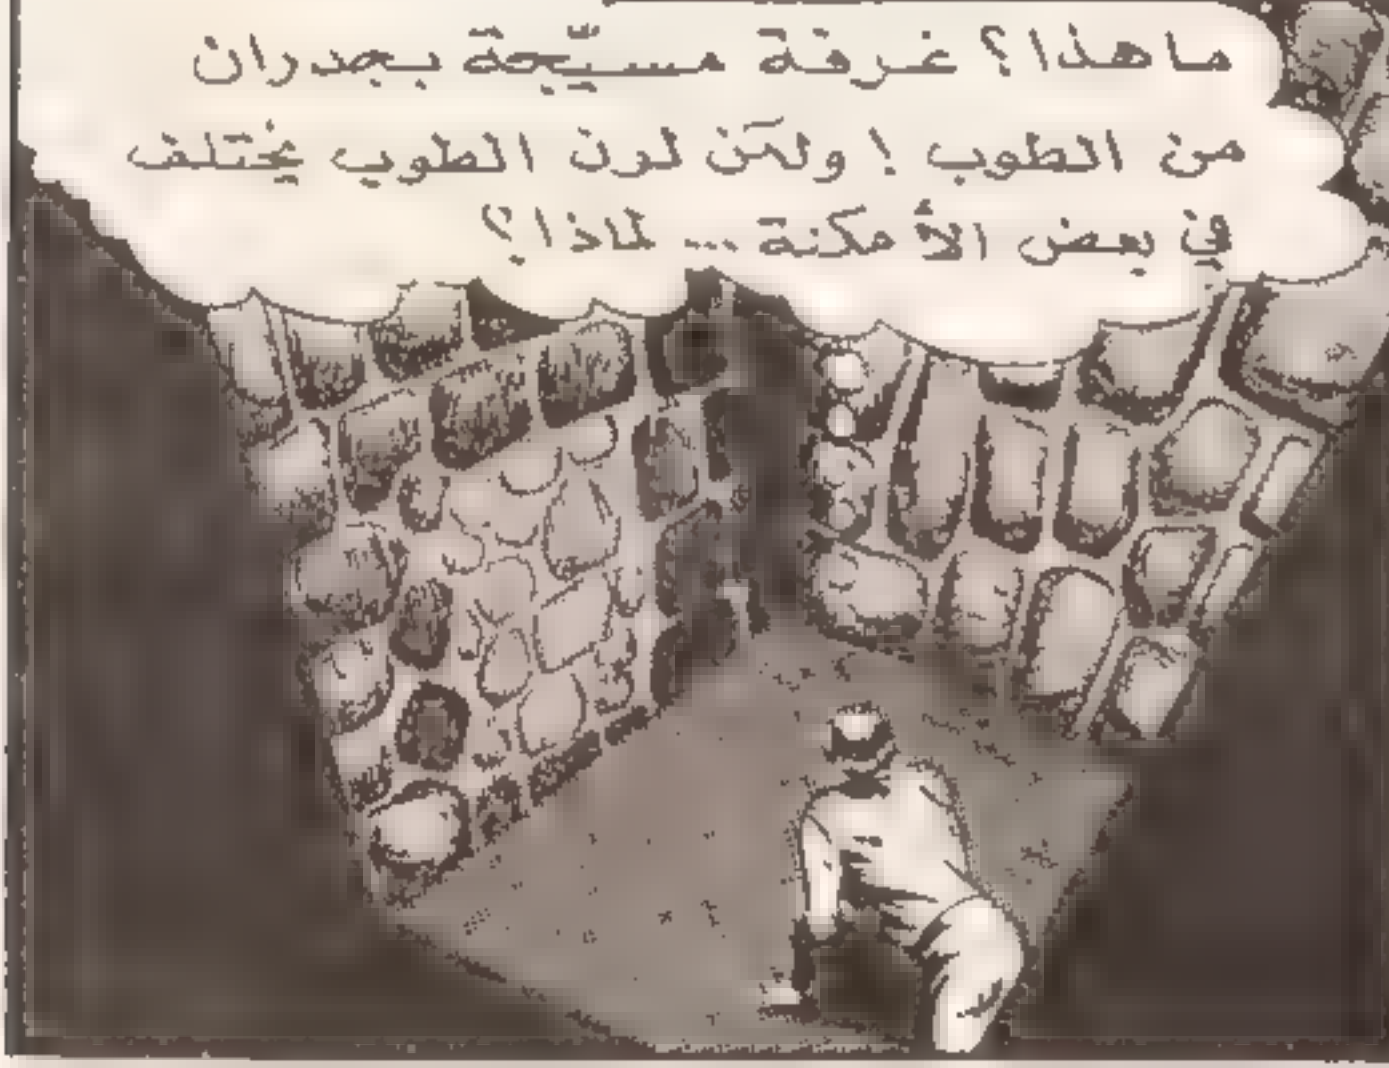 ما هذا؟ غرفة مسيّجة بجدران
من الطوب! ولكن لون الطوب يختلف
في بعض الأمكنة... لماذا؟